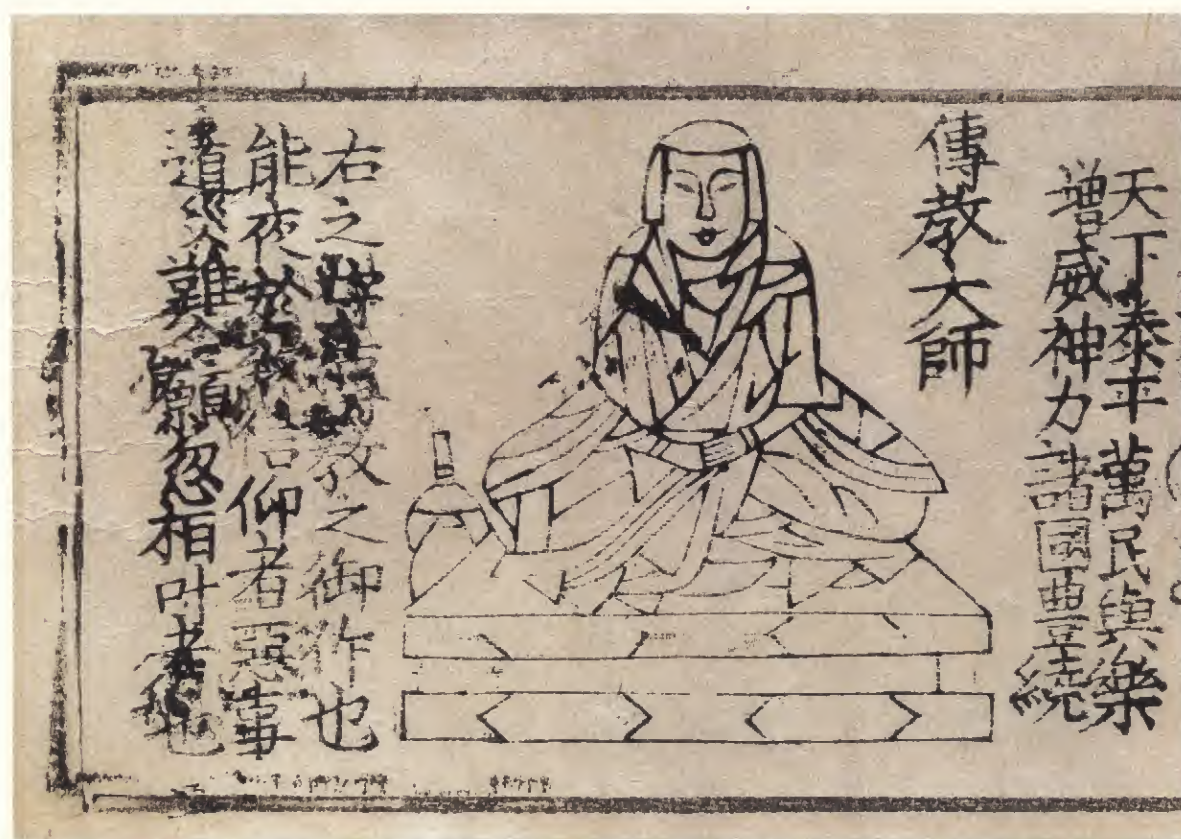 天下泰平萬民與樂
增威神力諸國豐繞
傳教大師
右之 教之御作也
能夜於 信仰者惡事
災難 願忽相叶者也